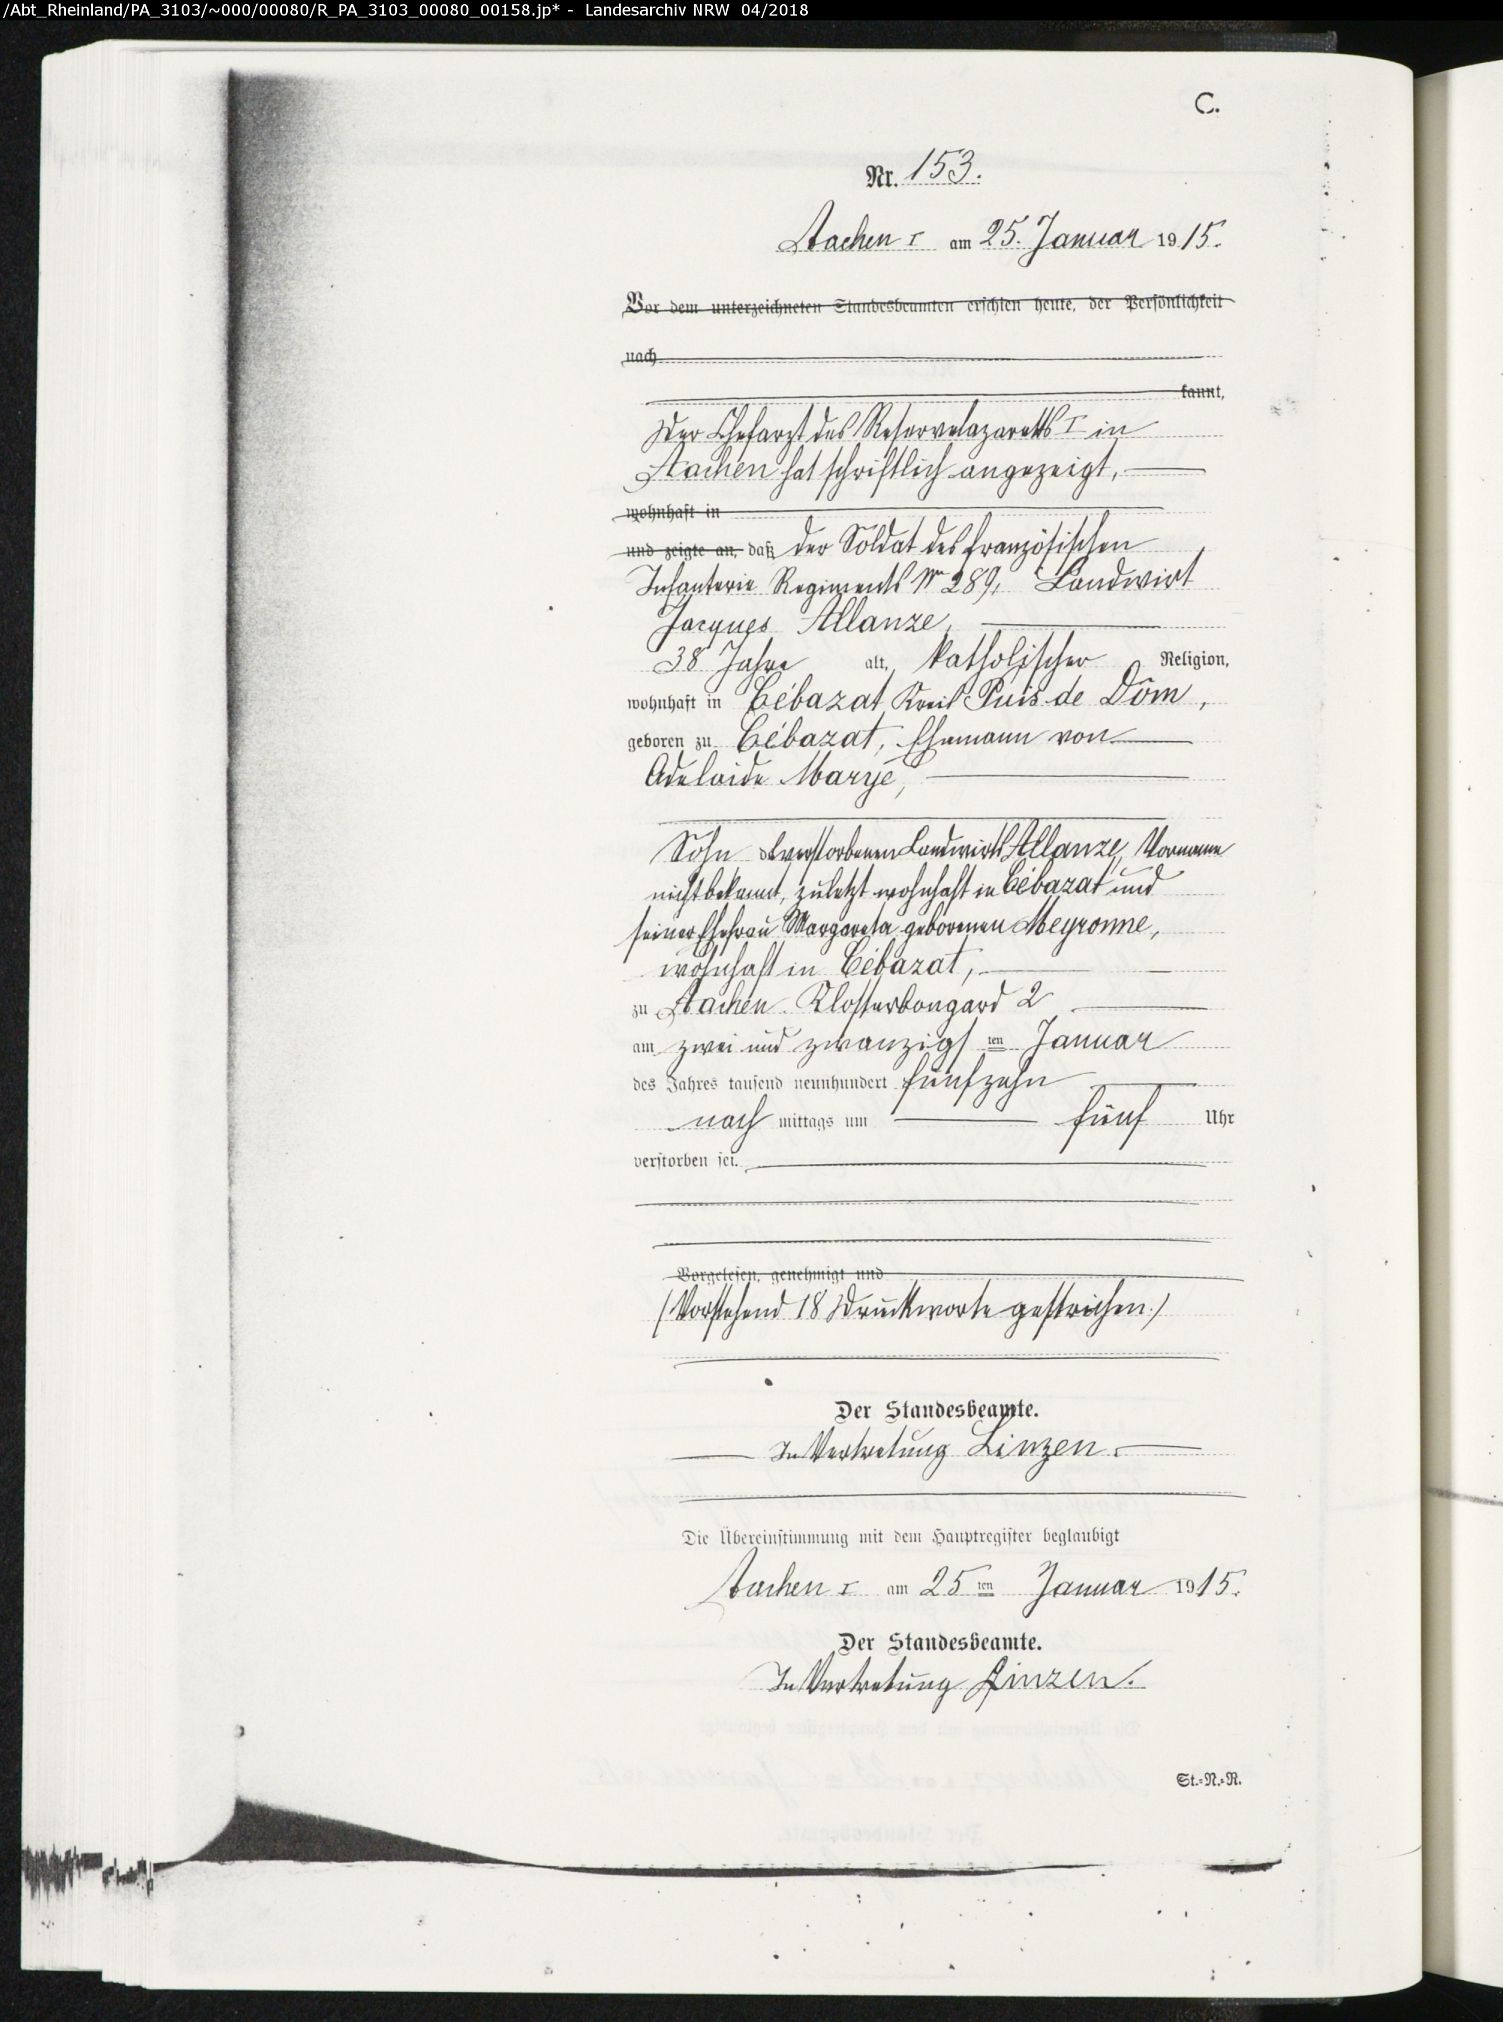 /Abt_Rheinland/PA_3103/~000/00080/R_PA_3103_00080_00158.jp* - Landesarchiv NRW 04/2018
C.
Nr. 153.
Aachen I am 25. Januar 1915.
Vor dem unterzeichneten Standesbeamten erschien heute, der Persönlichkeit
nach
kannt,
Der Chefarzt des Reservelazaretts I in
Aachen hat schriftlich angezeigt,
wohnhaft in
und zeigte an, daß der Soldat des französischen
Infanterie Regiments No 289, Landwirt
Jacques Allanze,
38 Jahre alt, katholischer Religion,
wohnhaft in Cébazat, Kreis Puis de Dôm,
geboren zu Cébazat, Ehemann von
Adelaide Marye,
Sohn des verstorbenen Landwirts Allanze, Vorname
nicht bekannt, zuletzt wohnhaft in Cébazat und
seiner Ehefrau Margareta geborenen Meyronne,
wohnhaft in Cébazat,
zu Aachen Klosterbongard 2
am zwei und zwanzigsten Januar
des Jahres tausend neunhundert fünfzehn
nach mittags um fünf Uhr
verstorben sei.
Vorgelesen, genehmigt und
(Vorstehend 18 Druckworte gestrichen.)
Der Standesbeamte.
In Vertretung Linzen.
Die Übereinstimmung mit dem Hauptregister beglaubigt
Aachen I am 25ten Januar 1915.
Der Standesbeamte.
In Vertretung Linzen.
St.=N.=R.